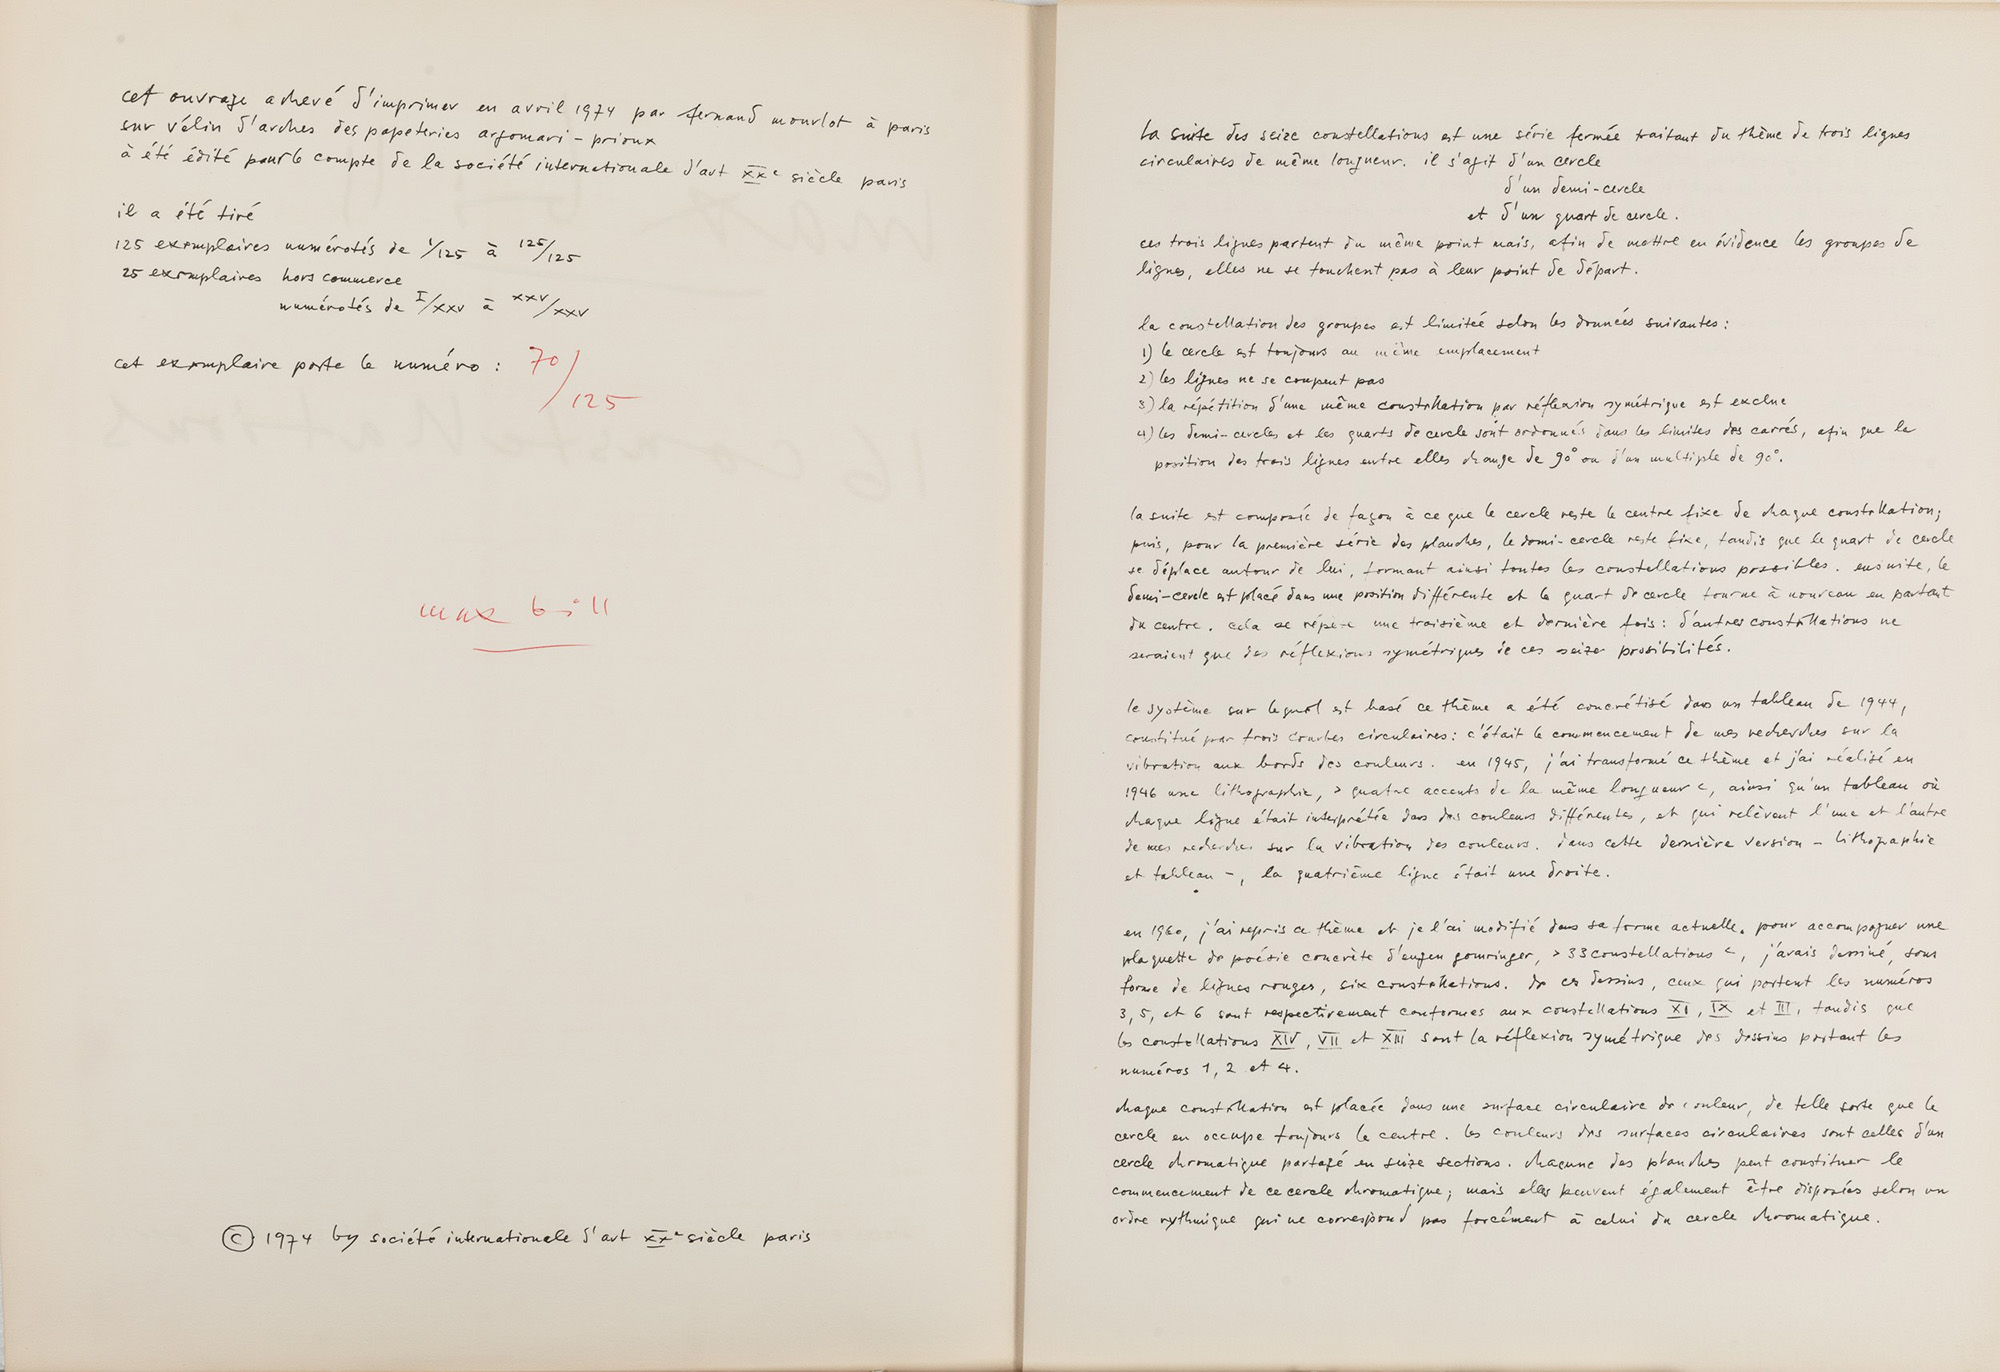 cet ouvrage achevé d'imprimer en avril 1974 par fernand mourlot à paris
sur vélin d'arches des papeteries arjomari – prioux
à été édité pour le compte de la société internationale d'art XXe siècle paris
il a été tiré
125 exemplaires numérotés de 1/125 à 125/125
25 exemplaires hors commerce
numérotés de I/XXV à XXV/XXV
cet exemplaire porte le numéro : 70/125
max bill
© 1974 by société internationale d'art XXe siècle paris
la suite des seize constellations est une série fermée traitant du thème de trois lignes
circulaires de même longueur. il s'agit d'un cercle
d'un demi-cercle
et d'un quart de cercle.
ces trois lignes partent du même point mais, afin de mettre en évidence les groupes de
lignes, elles ne se touchent pas à leur point de départ.
la constellation des groupes est limitée selon les données suivantes :
1) le cercle est toujours au même emplacement
2) les lignes ne se coupent pas
3) la répétition d'une même constellation par réflexion symétrique est exclue
4) les demi-cercles et les quarts de cercle sont ordonnés dans les limites des carrés, afin que la
position des trois lignes entre elles change de 90° ou d'un multiple de 90°.
la suite est composée de façon à ce que le cercle reste le centre fixe de chaque constellation;
puis, pour la première série des planches, le demi-cercle reste fixe, tandis que le quart de cercle
se déplace autour de lui, formant ainsi toutes les constellations possibles. ensuite, le
demi-cercle est placé dans une position différente et le quart de cercle tourne à nouveau en partant
du centre. cela se répète une troisième et dernière fois : d'autres constellations ne
seraient que des réflexions symétriques de ces seize possibilités.
le système sur lequel est basé ce thème a été concrétisé dans un tableau de 1944,
constitué par trois courbes circulaires : c'était le commencement de mes recherches sur la
vibration aux bords des couleurs. en 1945, j'ai transformé ce thème et j'ai réalisé en
1946 une lithographie, > quatre accents de la même longueur <, ainsi qu'un tableau où
chaque ligne était interprétée dans des couleurs différentes, et qui relèvent l'une et l'autre
de mes recherches sur la vibration des couleurs. dans cette dernière version – lithographie
et tableau –, la quatrième ligne était une droite.
en 1960, j'ai repris ce thème et je l'ai modifié dans sa forme actuelle. pour accompagner une
plaquette de poésie concrète d'eugen gomringer, > 33 constellations <, j'avais dessiné, sous
forme de lignes rouges, six constellations. de ces dessins, ceux qui portent les numéros
3, 5, et 6 sont respectivement conformes aux constellations XI, IX et III, tandis que
les constellations XIV, VII et XIII sont la réflexion symétrique des dessins portant les
numéros 1, 2 et 4.
chaque constellation est placée dans une surface circulaire de couleur, de telle sorte que le
cercle en occupe toujours le centre. les couleurs des surfaces circulaires sont celles d'un
cercle chromatique partagé en seize sections. chacune des planches peut constituer le
commencement de ce cercle chromatique; mais elles peuvent également être disposées selon un
ordre rythmique qui ne correspond pas forcément à celui du cercle chromatique.